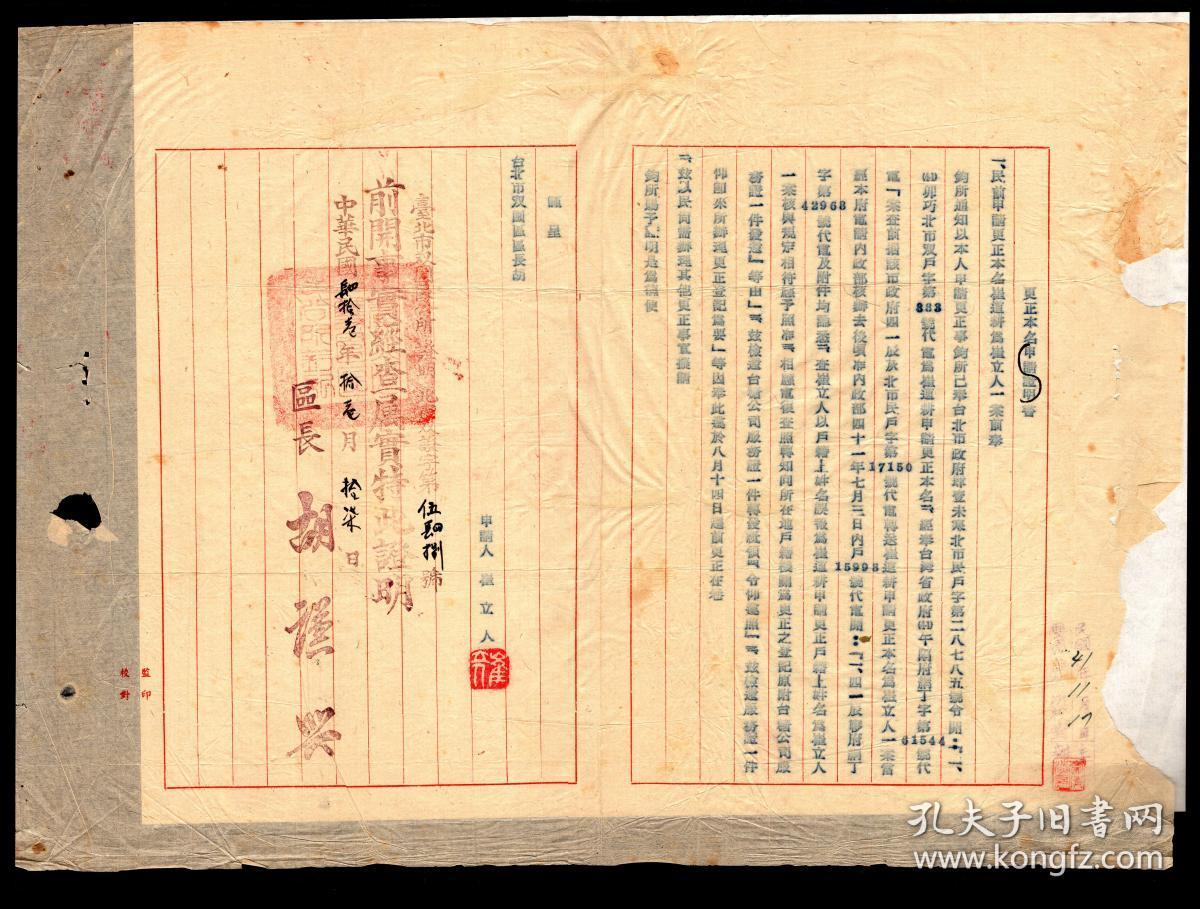 更正本名申請證明書
一、民前申請更正本名崔道耕為崔立人一案前奉
鈞所通知以本人申請更正事鈞所已奉台北市政府
北市民戶字第二八七八五號令開：「一、
卯巧北市双戶字第383號代電為崔道耕申請更正本名
經奉台灣省政府
午
府
丁字第61544號代
電「
案查前據該市政府四一辰
北市民戶字第17150號代電轉送崔道耕申請更正本名為崔立人一案當
經本府電請內政部核辦去後頃准內政部四十一年七月三日內戶15998號代電開：「一、四一辰
府
丁
字第42968號代電及附件均
悉二、查崔立人以戶籍上姓名誤報為崔道耕申請更正戶籍上姓名為崔立人
一案核與規定相符應予照准三、相應電復查照轉知向所在地戶籍機關為更正之登記原附台糖公司服
務證一件
還」等由二、茲檢還台糖公司服務證一件轉發
領
令仰
照」三、茲檢還服務證一件
仰即來所辦理更正登記為要」等因奉此遵於八月十四日
前更正在卷
二、茲以民尚需辦理其他更正事宜
請
鈞所賜予証明是為
便
謹呈
台北市双園區區長胡
申請人 崔立人
臺北市
字第伍肆捌號
前開事實經查屬實特此證明
中華民國肆拾壹年拾壹月拾柒日
區長 胡
監印
校對
民國
41
11
17
孔夫子旧书网
www.kongfz.com